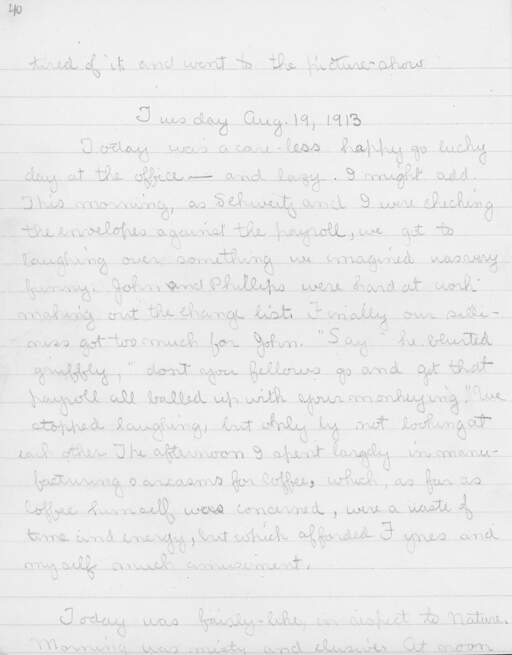 40
tired of it and went to the picture-show
Tuesday Aug. 19, 1913
Today was a care-less happy go lucky
day at the office — and lazy. I might add.
This morning, as Schweitz and I were checking
the envelopes against the payroll, we got to
laughing over something we imagined was very
funny. John and Phillips were hard at work
making out the change list. Finally our silli-
ness got too much for John. "Say" he blurted
gruffly, "dont you fellows go and get that
payroll all balled up with your monkeying." We
stopped laughing, but only by not looking at
each other The afternoon I spent largely in manu-
facturing sarcasms for Coffee, which, as far as
Coffee himself was concerned, were a waste of
time and energy, but which afforded Fynes and
myself much amusement.
Today was fairy-like, in respect to Nature.
Morning was misty and elusive. At noon